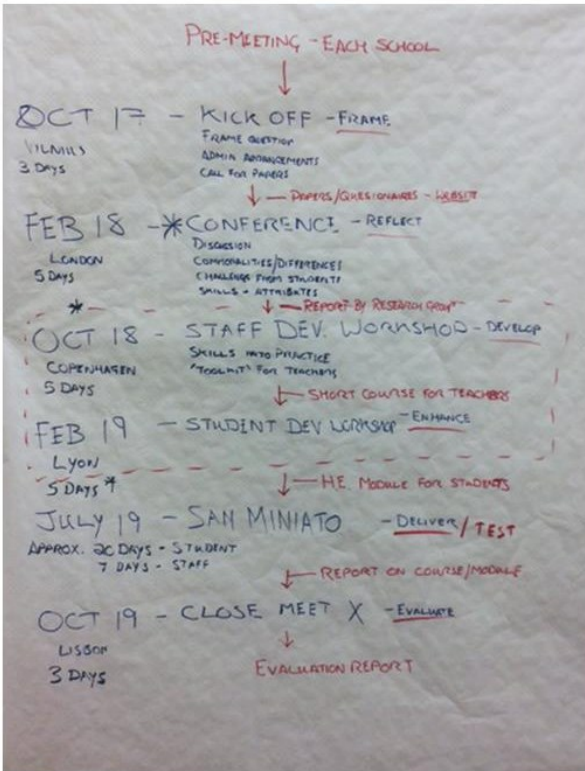 PRE-MEETING - EACH SCHOOL
OCT 17 - KICK OFF - FRAME
VILNIUS
3 DAYS
FRAME QUESTION
ADMIN ARRANGEMENTS
CALL FOR PAPERS
PAPERS/QUESIONAIRES - WEBSITE
FEB 18 - * CONFERENCE - REFLECT
LONDON
5 DAYS
DISCUSSION
COMMONALITIES/DIFFERENCES
CHALLENGE FROM STUDENTS
SKILLS + ATTRIBUTES
REPORT BY RESEARCH GROUP
*
OCT 18 - STAFF DEV. WORKSHOP - DEVELOP
COPENHAGEN
5 DAYS
SKILLS INTO PRACTICE
"TOOLKIT" FOR TEACHERS
SHORT COURSE FOR TEACHERS
FEB 19 - STUDENT DEV WORKSHOP - ENHANCE
LYON
5 DAYS *
H.E. MODULE FOR STUDENTS
JULY 19 - SAN MINIATO - DELIVER / TEST
APPROX. 20 DAYS - STUDENT
7 DAYS - STAFF
REPORT ON COURSE/MODULE
OCT 19 - CLOSE MEET X - EVALUATE
LISBON
3 DAYS
EVALUATION REPORT